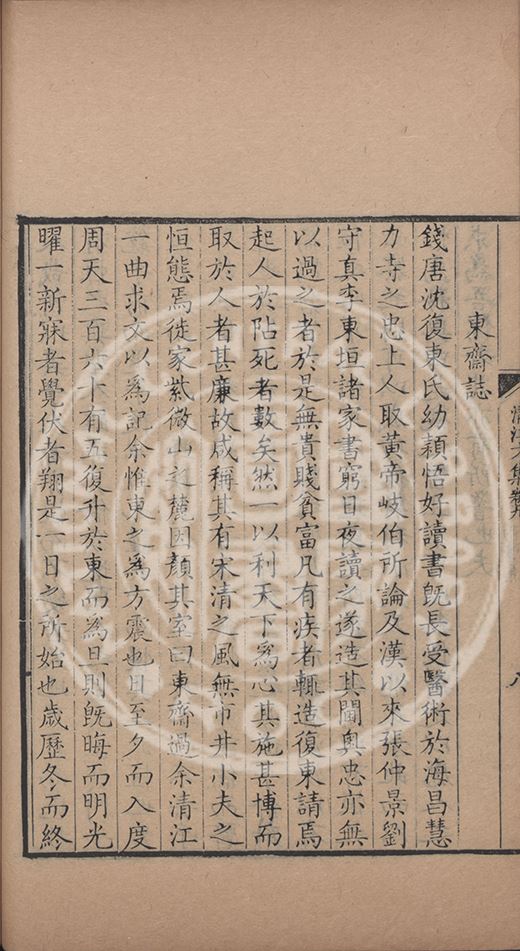 東齋誌
錢唐沈復東氏幼穎悟好讀書旣長受醫術於海昌慧
力寺之忠上人取黃帝岐伯所論及漢以來張仲景劉
守真李東垣諸家書窮日夜讀之遂造其閫奧忠亦無
以過之者於是無貴賤貧富凡有疾者輒造復東請焉
起人於阽死者數矣然一以利天下爲心其施甚博而
取於人者甚廉故咸稱其有宋清之風無市井小夫之
恒態焉徙家紫微山之麓因顏其室曰東齋過余清江
一曲求文以爲記余惟東之爲方震也日至夕而入度
周天三百六十有五復升於東而爲旦則旣晦而明光
曜一新寐者覺伏者翔是一日之所始也歲歷冬而終